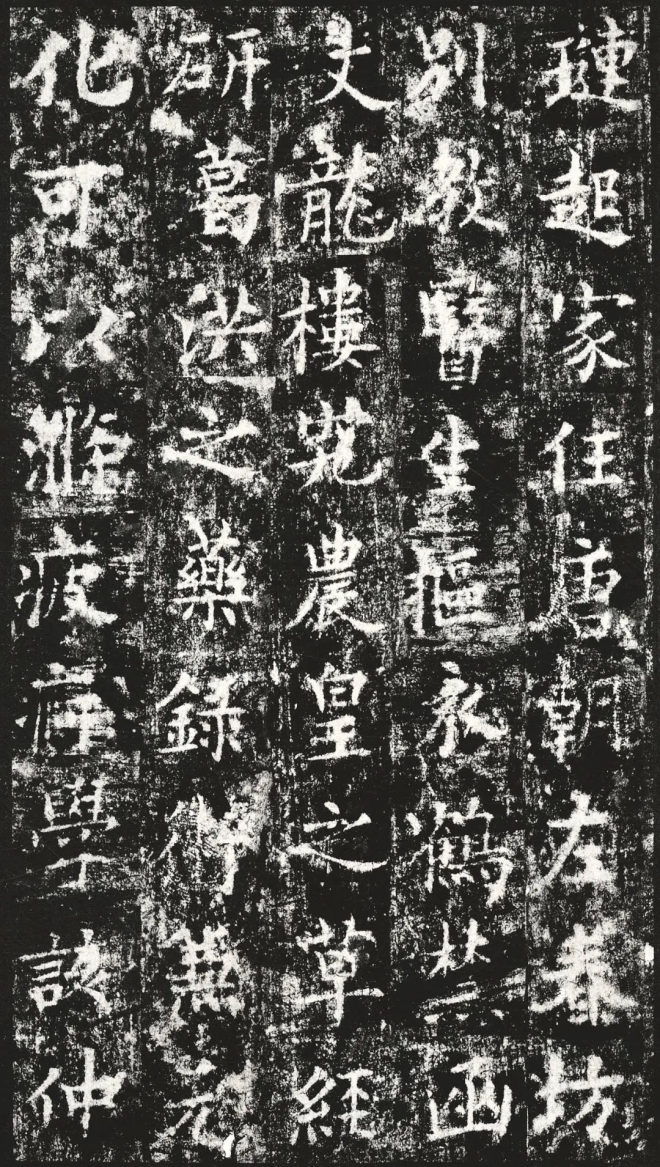 璉起家任唐朝左春坊
別教醫生摳衣鶴禁函
丈龍樓究農皇之草經
研葛洪之藥錄術兼元
化可以滌疲學該仲